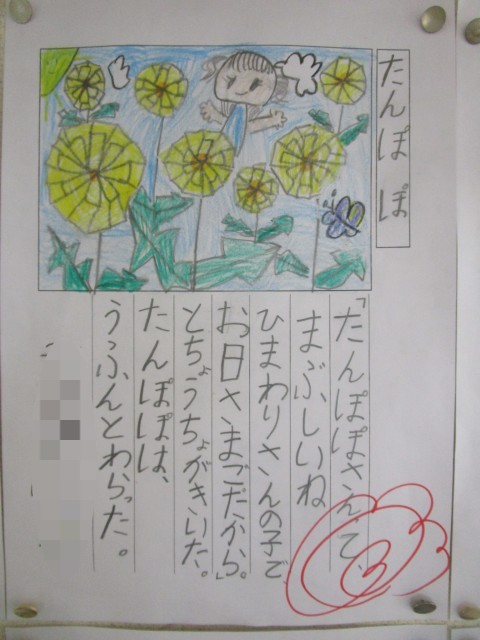 たんぽぽ
「たんぽぽさんて、
まぶしいね
ひまわりさんの子で
お日さまごだから。」
とちょうちょがきいた。
たんぽぽは、
うふんとわらった。